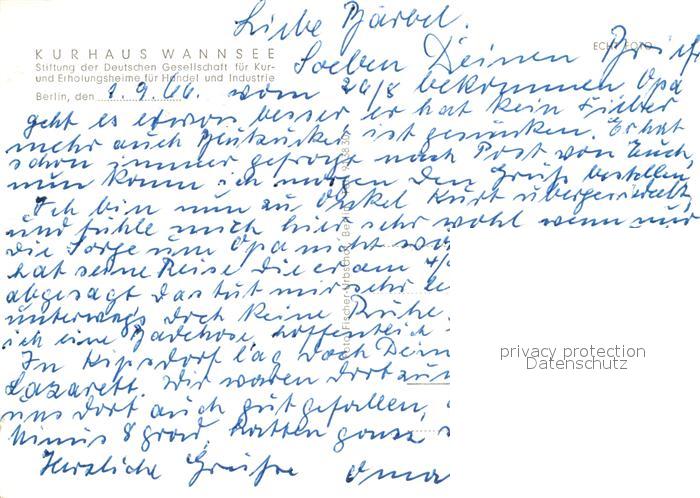 Liebe Bärbel.
KURHAUS WANNSEE
ECHT FOTO
Soeben Deinen Brief
Stiftung der Deutschen Gesellschaft für Kur-
und Erholungsheime für Handel und Industrie
Berlin, den 1.9.66. vom 29/8 bekommen Opa
geht es etwas besser er hat kein Fieber
mehr auch ist gesunken. Er hat
schon immer gefragt nach Post von Euch
nun kann ich morgen den Gruß bestellen
Ich bin nun zu Onkel Kurt übergesiedelt
und fühle mich hier sehr wohl wenn nur
die Sorge um Opa nicht
hat seine Reise die er am 4/
abgesagt das tut mir sehr le
unterwegs doch keine Ruhe.
ich eine Badehose, hoffentlich
In Kipsdorf lag doch Dein
Lazarett. Wir waren dort
uns dort auch gut gefallen,
Minus 8 grad, hatten ganze
Herzliche Grüße Oma
privacy protection
Datenschutz